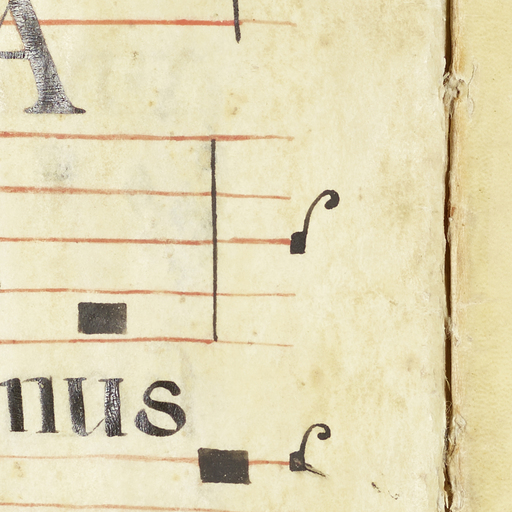 A
nus